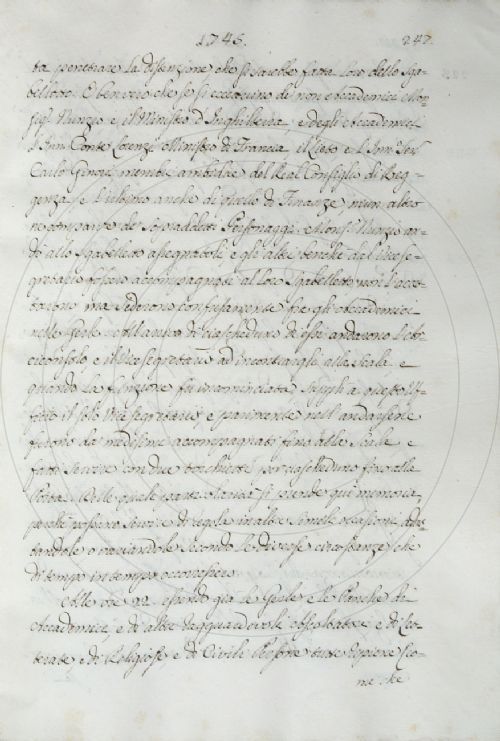 1745. 247.
ta penetrare la distinzione che si sarebbe fatta loro dello Sga-
bellotto. O ben vero che se si eccettuino de' non Accademici Mon-
sig.r Nunzio e il Ministro d'Inghilterra, e degli Accademici
Conte Lorenzi Ministro di Francia il
Carlo Ginori membri ambedue del Real Consiglio di Reg-
genza, e l'ultimo anche di quello di Finanze, niun altro
de' sopraddetti Personaggi, e Mons.r Nunzio an-
dò allo Sgabellotto assegnatoli e gli altri benche dal Vice se-
gretario fossero accompagnati al loro Sgabellotto non l'accet-
tarono ma sederono confusamente fra gli Accademici
nelle Gerle. All'arrivo di ciascheduno di essi andarono l'Ar-
ciconsolo e il Vice segretario ad incontrargli alle scale e
quando la funzione fu incominciata a questo Uf-
fizio il solo Vice segretario, e finalmente nell'andarsene
furono da' medesimi accompagnati fino alle scale e
fatti servire con due torchietti per ciascheduno fino alla
Porta. Delle quali si prende qui memoria,
perchè possino servire di regola in altre simili occasioni, adat-
tandole o variandole secondo le diverse circostanze che
di tempo in tempo occorressero.
Alle ore 22 essendo già le Gerle e le Panche di
Accademici, e di altri ragguardevoli e di Let-
terati e di Religiosi, e di Civili Persone tutte ripiene